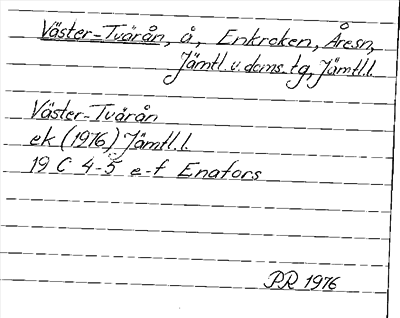 Väster-Tvärån, å, Enkroken, Åresn,
Jämtl. v. doms. tg, Jämtl. l.
Väster-Tvärån
ek (1976) Jämtl. l.
19 C 4-5 e-f Enafors
PR 1976